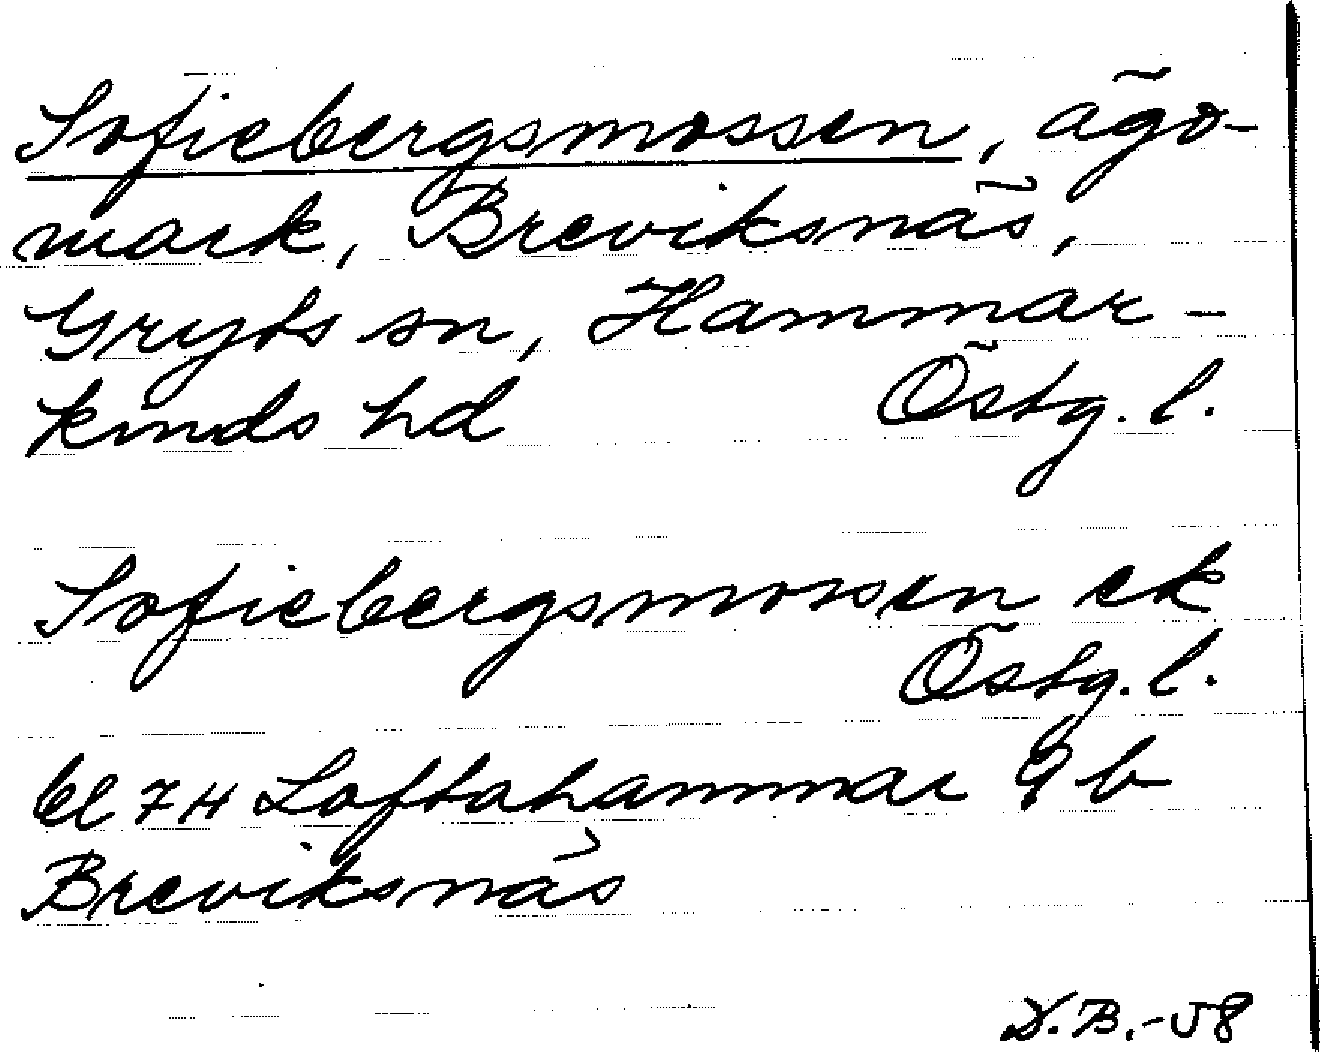 Sofiebergsmossen, ägo-
mark, Breviksnäs,
Gryts sn, Hammar-
kinds hd Östg. l.
Sofiebergsmossen ek
Östg. l.
bl 7H Loftahammar 9 b
Breviksnäs
D.B.-58